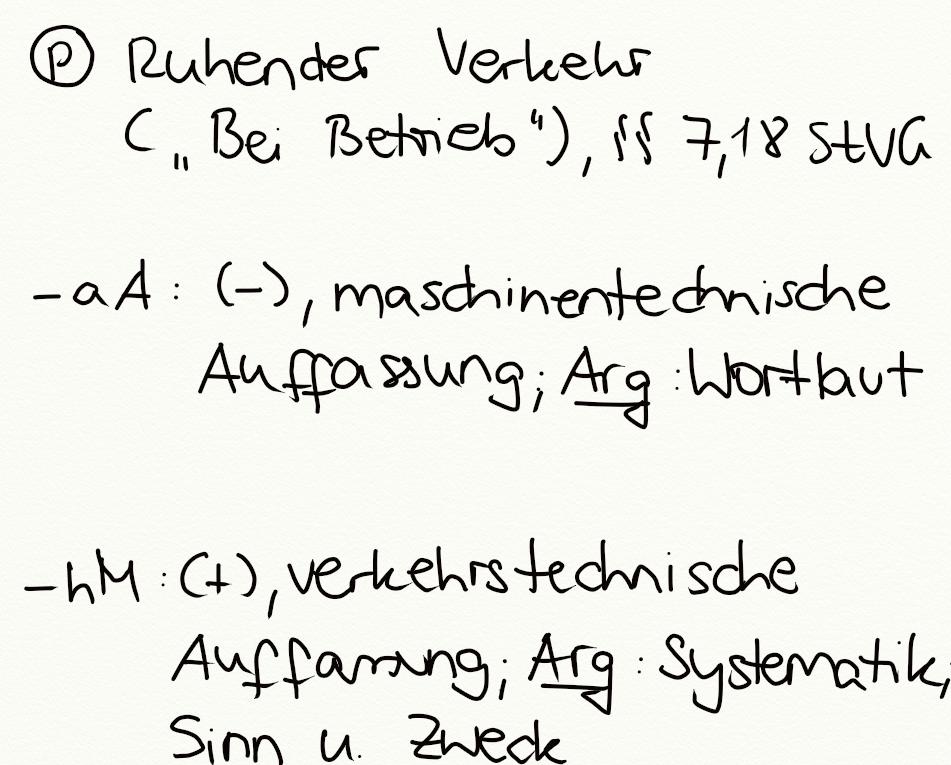 Ⓟ Ruhender Verkehr
(„Bei Betrieb“), §§ 7,18 StVG
- aA: (-), maschinentechnische
Auffassung; Arg: Wortlaut
- hM: (+), verkehrstechnische
Auffassung; Arg: Systematik,
Sinn u. Zweck